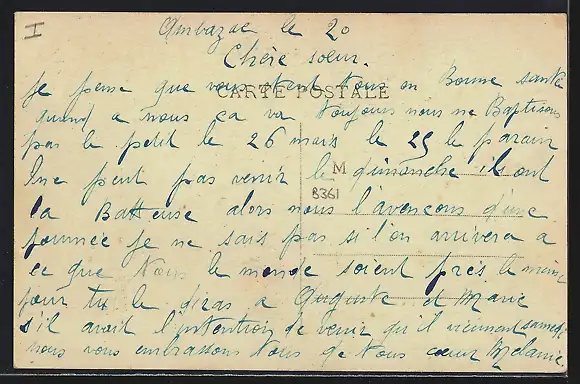 I
Ambazac le 20
Chère soeur.
Je pense que vous etent tous en Bonne santé
CARTE POSTALE
quand a nous ça va toujours nous ne Baptisons
pas le petit le 26 mais le 25 le parain
ne peut pas venir le dimanche ils ont
M
8361
la Batteuse alors nous l'avençons d'une
journée je ne sais pas si l'on arrivera a
ce que tous le monde soient près le même
jour tu le diras a Auguste et Marie
s'il avait l'intention de venir qu'il viennent samedi
nous vous embrassons tous de tous coeur Mélanie